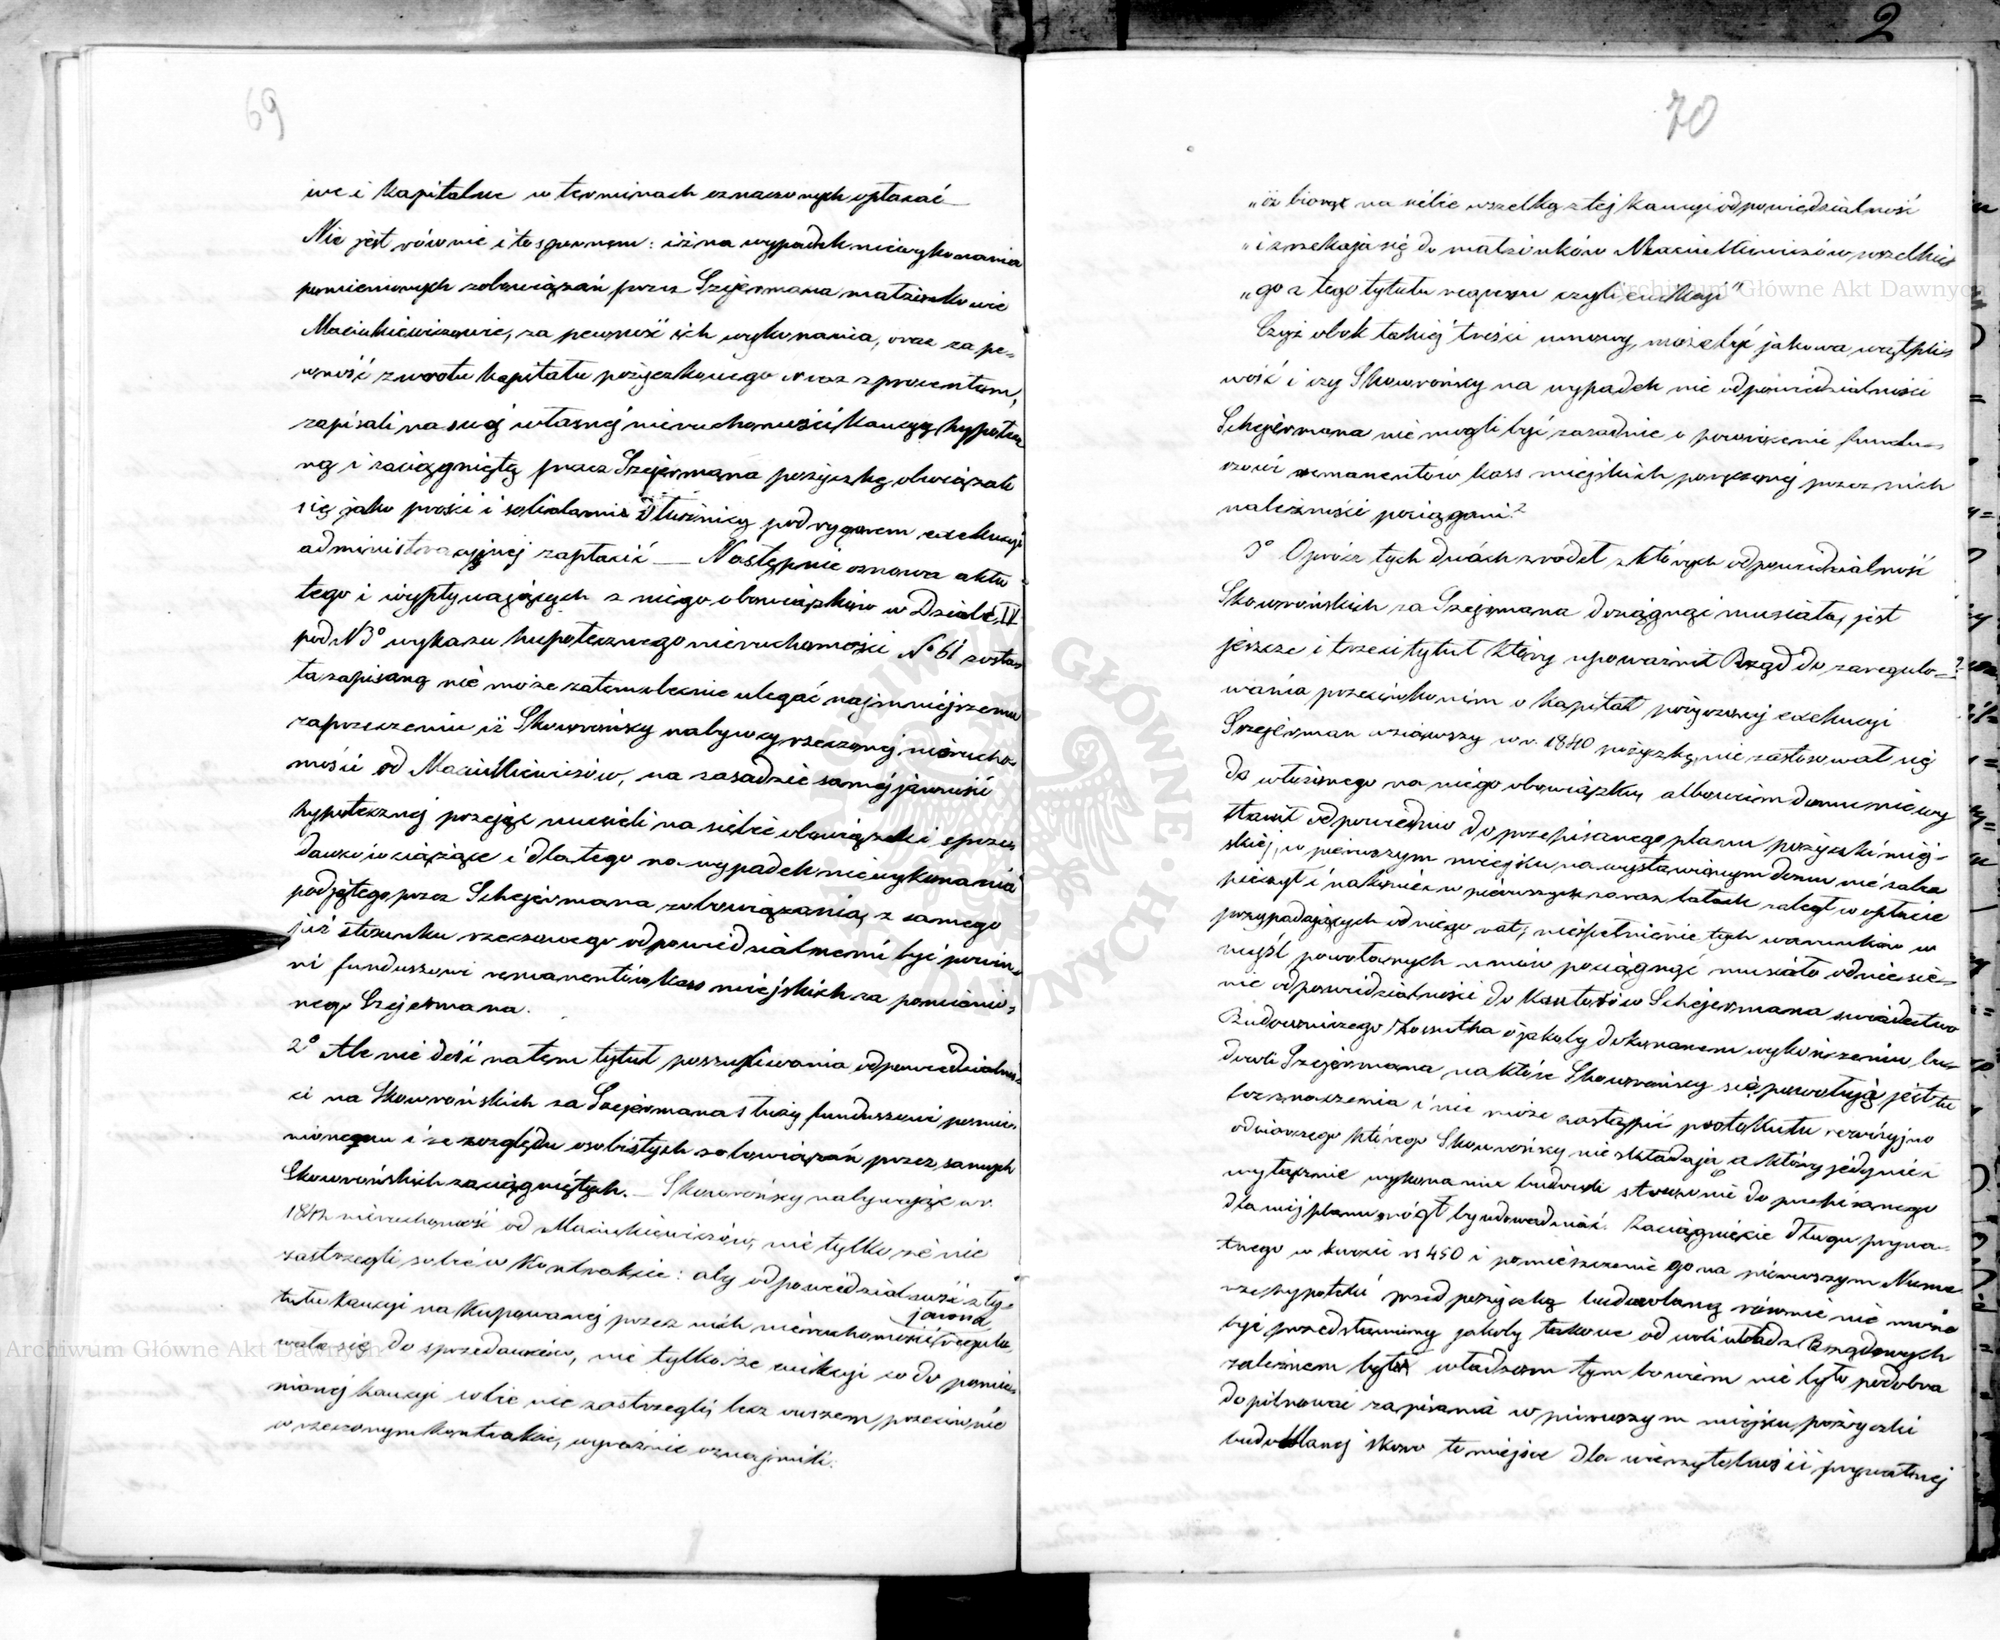 69
we i kapitalne w terminach oznaczonych opłacać
Nie jest równie i to spornem: iż na wypadek niewykonania
pomienionych zobowiązań przez Szejermana małżonkowie
Maciukiewiczowie, za pewność ich wykonania, oraz za pe-
wność zwrotu kapitału pożyczkowego wraz z procentem,
zapisali na swej własnej nieruchomości kaucyą hypotecz
ną i zaciągniętą przez Szejermana pożyczkę obwiązali
się jako prości i solidarni dłużnicy pod rygorem exekucyi
administracyjnej zapłacić — Następnie osnowa aktu
tego i wypływających z niego obowiązków w Dziale IV
pod N 3º wykazu hypotecznego nieruchomości Nº 61 zosta
ła zapisaną nie może zatem obecnie ulegać najmniejszemu
zaprzeczeniu iż Skowrońscy nabywcy rzeczonej nierucho-
mości od Maciukiewiczów, na zasadzie samej jawności
hypotecznej przejąć musieli na siebie obowiązki sprze
dawców ciążące i dlatego na wypadek niewykonania
podjętego przez Schejermana zobowiązania, z samego
już stosunku rzeczowego odpowiedzialnemi być powin-
ni funduszowi remanentów kass miejskich za pomienio-
nego Szejermana.
2º Ale nie dość na tem tytuł poszukiwania odpowiedzialnoś-
ci na Skowrońskich za Szejermana służy funduszowi pomie-
nionemu i ze względu osobistych zobowiązań przez samych
Skowrońskich zaciągniętych. — Skowrońscy nabywając w r.
1842 nieruchomość od Maciukiewiczów, nie tylko że nie
zastrzegli sobie w Kontrakcie: aby odpowiedzialność z ty-
tułu kaucyi na kupowanej przez nich nieruchomości, regulo
jawona
wała się do sprzedawców, nie tylko że ewikcyi co do pomie-
nionej kaucyi sobie nie zastrzegli, lecz owszem przeciwnie
w rzeczonym kontrakcie, wyraźnie oznajmili:
2
70
„iż biorąc na siebie wszelką z tej kaucyi odpowiedzialność
„i zrzekają się do małżonków Maciukiewiczów wszelkie
„go z tego tytułu regressu czyli ewikcyi"
Czyż obok takiej treści umowy, może być jakowa wątpli-
wość i czy Skowrońscy na wypadek nie odpowiedzialności
Schejermana nie mogli być zasadnie o powrócenie fundu-
szowi remanentów kass miejskich poręczonej przez nich
należności pociągani?
3º Oprócz tych dwóch źródeł z których odpowiedzialność
Skowrońskich za Szejermana dosiągnąć musiała, jest
jeszcze i trzeci tytuł który upoważnił Rząd do zaregulo-
wania przeciwko nim o kapitał pożyczony exekucyi
Szejerman wziąwszy w r. 1840 pożyczkę, nie zastosował się
do włożonego na niego obowiązku, albowiem domu nie wy
stawił odpowiednio do przepisanego planu pożyczki miej-
skiej, w pierwszym miejscu na wystawionym domu nie zabez
pieczył i nakoniec w pierwszych zaraz latach zaległ w opłacie
przypadających od niego rat; niespełnienie tych warunków w
myśl powołanych umów pociągnąć musiało odniesie-
nie odpowiedzialności do Kautorów Schejermana świadectwo
Budowniczego o jakoby dokonanem wykończeniu bu-
dowli Szejermana na które Skowrońscy się powołują jest tu
bez znaczenia i nie może zastąpić protokułu rewizyjno
odbiorczego którego Skowrońscy nie składają a który jedynie
wyłącznie wykonanie budowli stosownie do przepisanego
dla niej planu mógł by udowodnić. Zaciągnięcie długu prywa-
tnego w kwocie rs 450 i pomieszczenie go na pierwszym Nume
rze hypoteki przed pożyczką budowlaną równie nie może
być przedstawiony jakoby takowe od woli władz Rządowych
zależnem było władzom tym bowiem nie było podobna
dopilnować zapisania w pierwszym miejscu pożyczki
budowlanej skoro to miejsce dla wierzytelności prywatnej
Archiwum Główne Akt Dawnych
Archiwum Główne Akt Dawnych